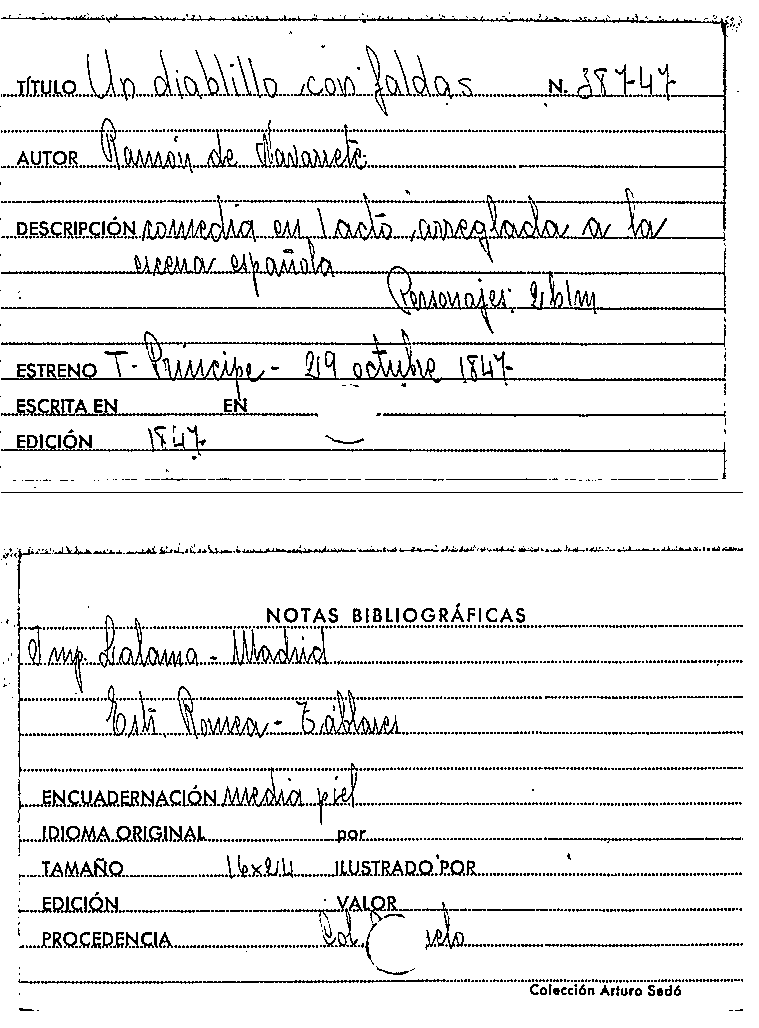 TÍTULO Un diablillo con faldas N. 38747
AUTOR Ramón de Navarrete
DESCRIPCIÓN comedia en 1 acto, arreglada a la
escena española
Personajes:
ESTRENO T. Príncipe - 29 octubre 1847
ESCRITA EN EN
EDICIÓN 1847
NOTAS BIBLIOGRÁFICAS
Imp. Lalama - Madrid
Romea -
ENCUADERNACIÓN media piel
IDIOMA ORIGINAL por
TAMAÑO 16x24 ILUSTRADO POR
EDICIÓN VALOR
PROCEDENCIA Col.
Colección Arturo Sedó